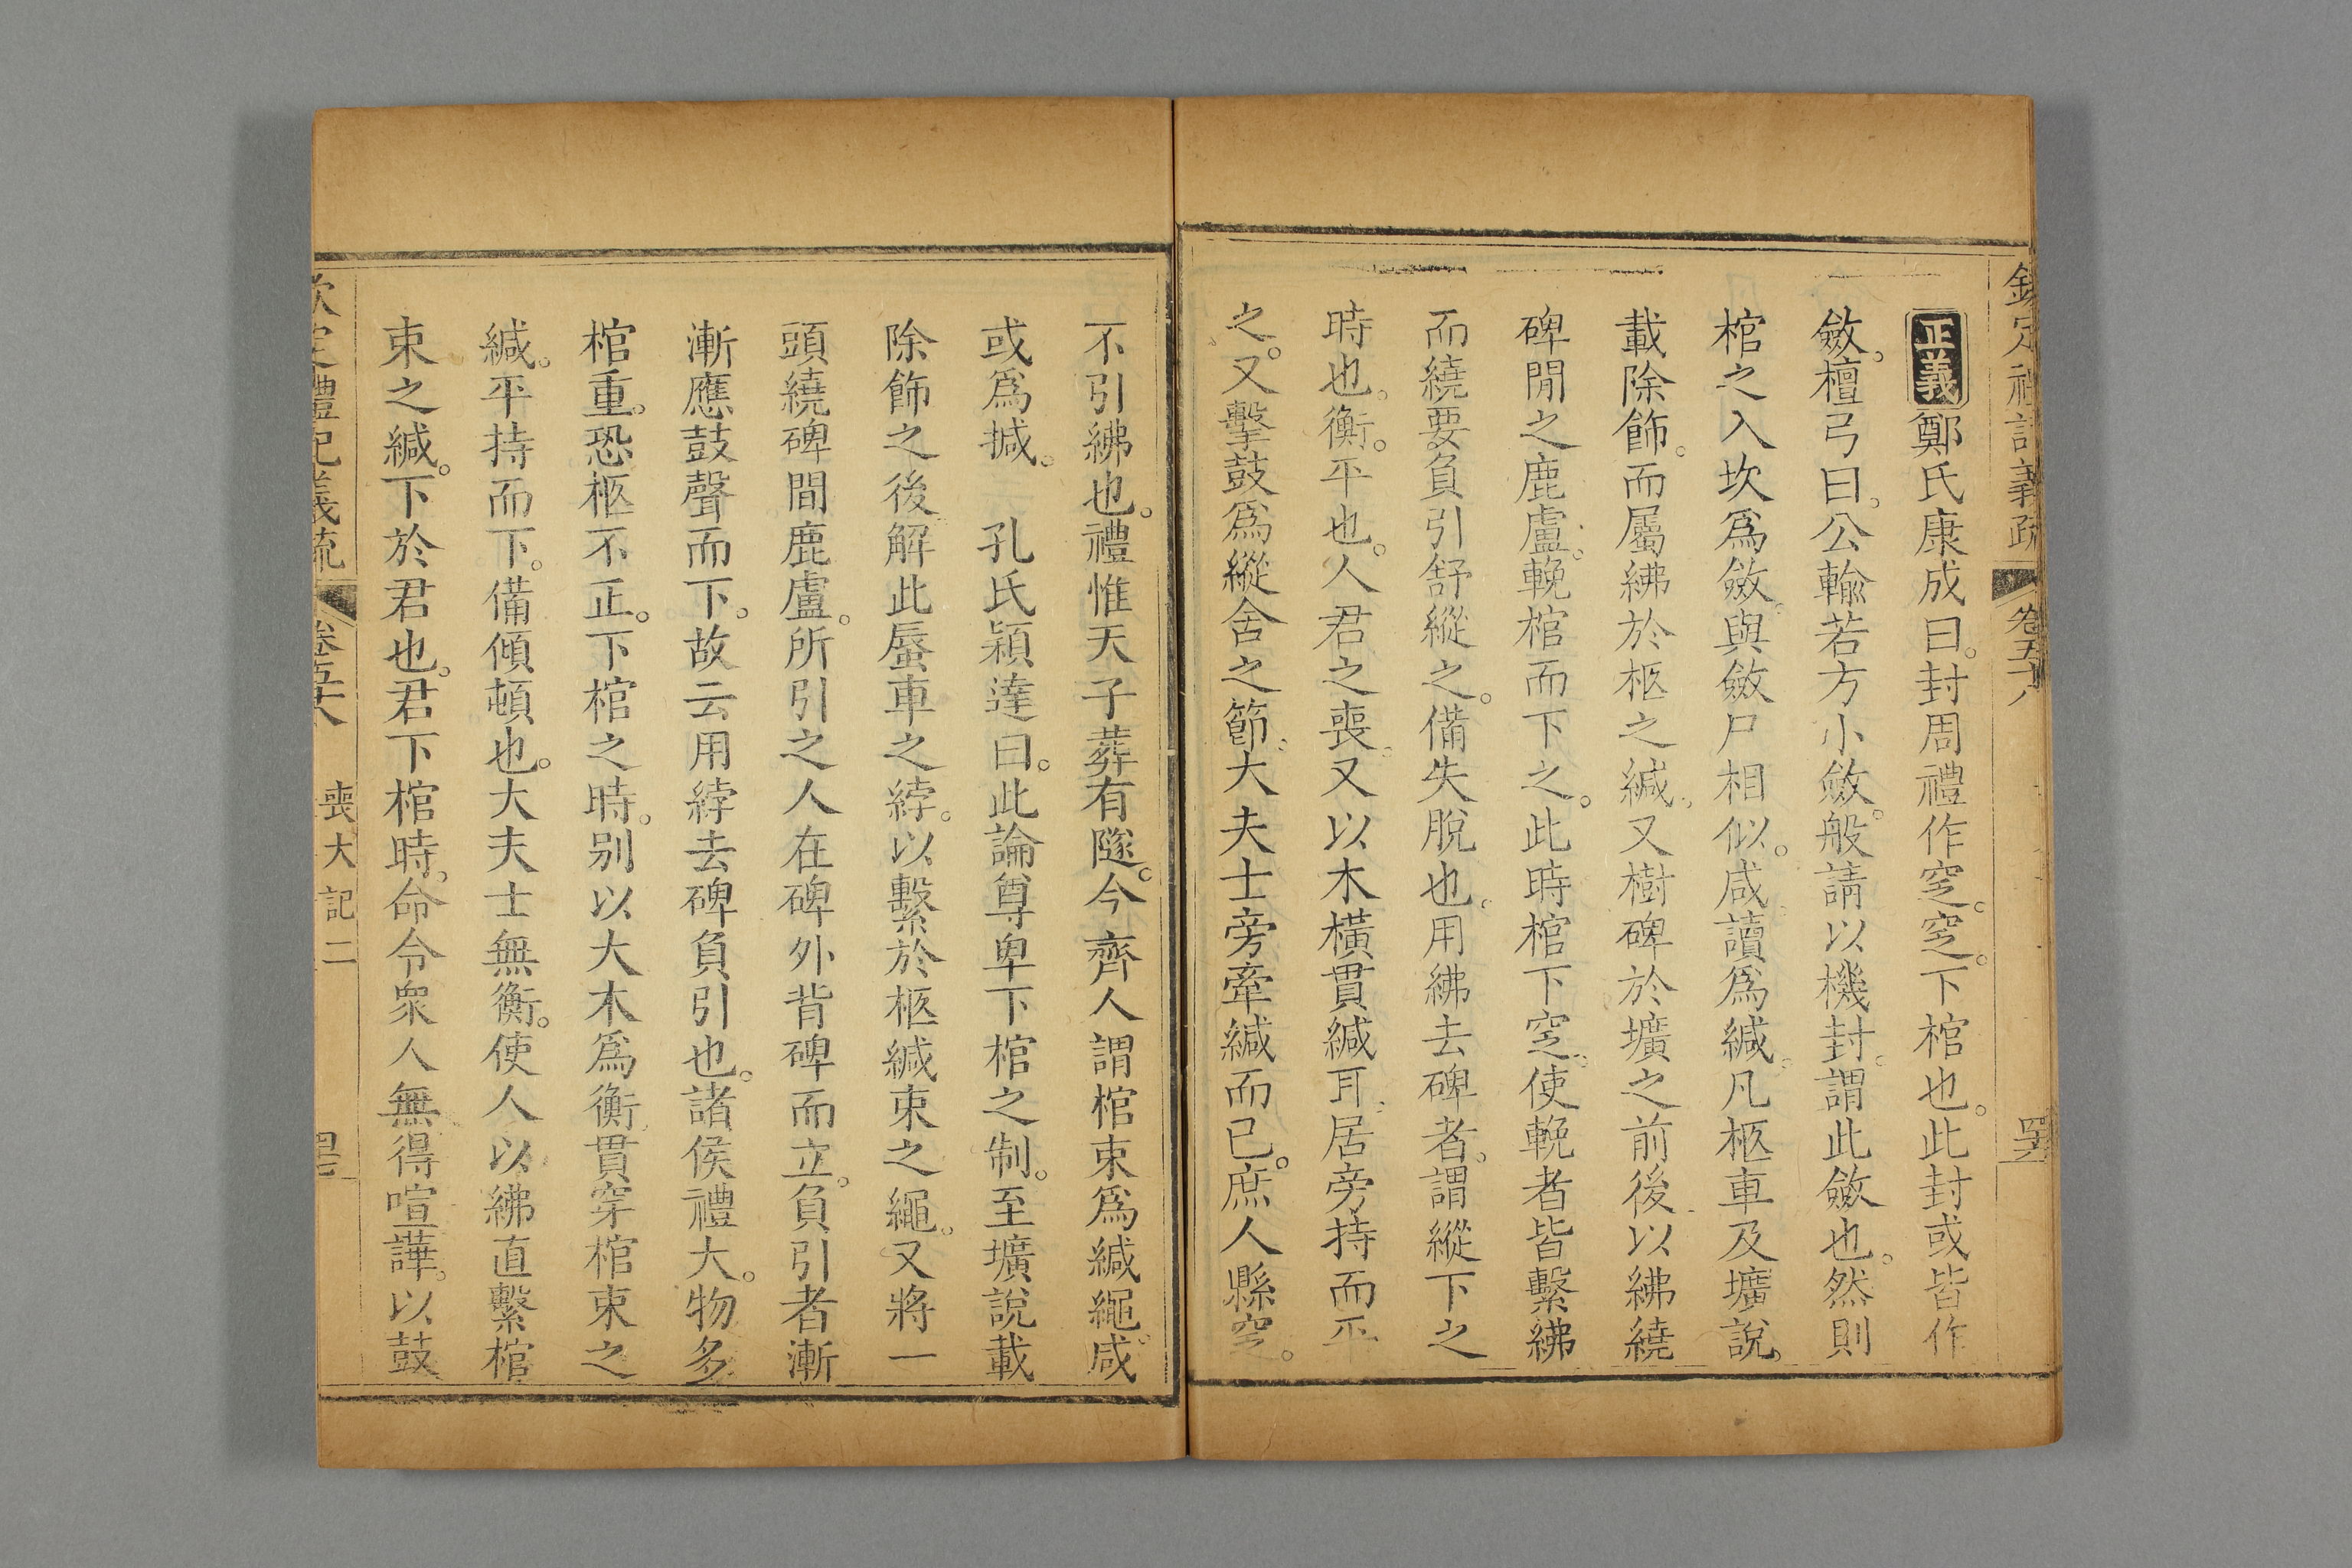 欽定禮記義疏 卷五十八
正義鄭氏康成曰。封周禮作窆。窆。下棺也。此封或皆作
斂。檀弓曰。公輸若方小斂。般請以機封。謂此斂也。然則
棺之入坎爲斂。與斂尸相似。咸讀爲緘。凡柩車及壙說。
載除飾。而屬紼於柩之緘。又樹碑於壙之前後以紼繞
碑閒之鹿盧。輓棺而下之。此時棺下窆。使輓者皆繫紼
而繞要負引舒縱之。備失脫也。用紼去碑者。謂縱下之
時也。衡。平也。人君之喪。又以木橫貫緘耳。居旁持而平
之。又擊鼓爲縱舍之節。大夫士旁牽緘而已。庶人縣窆。
不引紼也。禮惟天子葬有隧。今齊人謂棺束爲緘繩。咸
或爲椷。 孔氏穎達曰。此論尊卑下棺之制。至壙說載
除飾之後解此蜃車之綍。以繫於柩緘束之繩。又將一
頭繞碑間鹿盧。所引之人在碑外背碑而立。負引者漸
漸應鼓聲而下。故云用綍去碑負引也。諸侯禮大。物多
棺重。恐柩不正。下棺之時。别以大木爲衡貫穿棺束之
緘。平持而下。備傾頓也。大夫士無衡。使人以紼直繫棺
束之緘。下於君也。君下棺時。命令衆人無得喧譁。以鼓
欽定禮記義疏 卷五十八 喪大記二